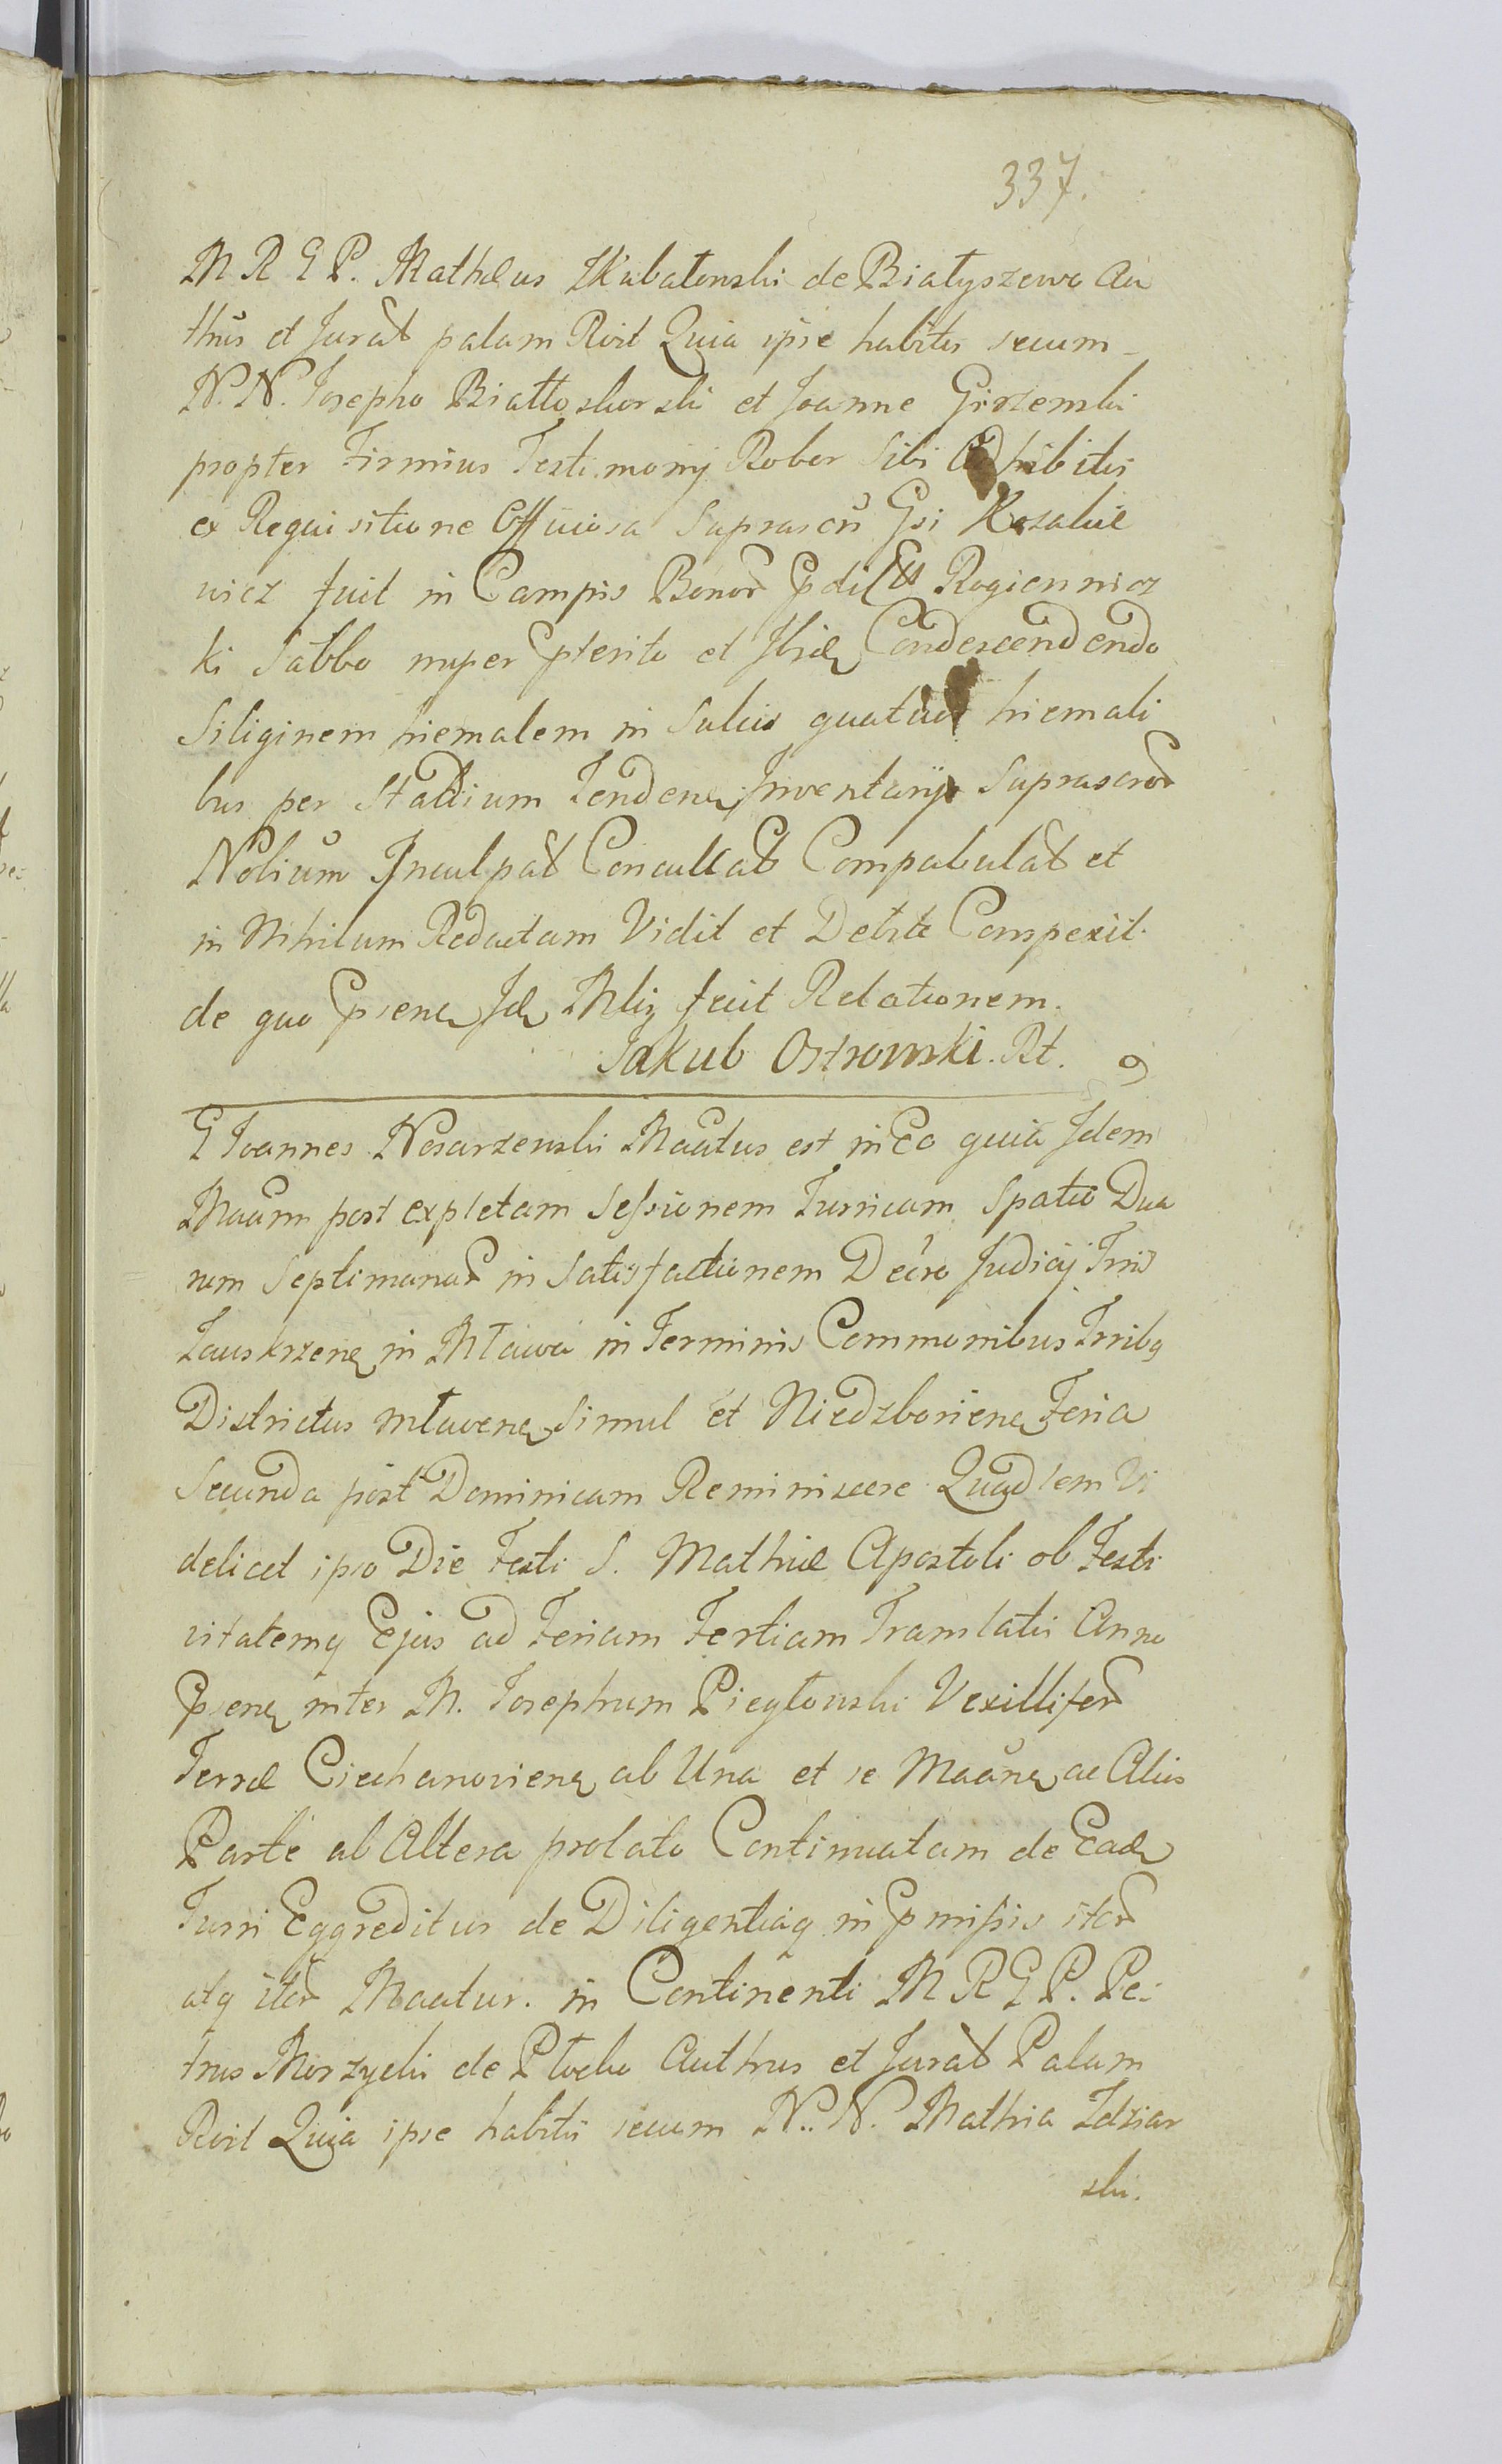 337.
M R G P. Matheus Skubatowski de Białyszewo Au
thus et Jurat palam Rvit Quia ipse habitis secum
N. N. Josepho Białłoskorski et Joanne Girzemski
propter Firmius Testimonij Robor Sibi Adhibitis
ex Requisitione Officiosa Suprascri Gsi Kozakie
wicz fuit in Campis Bonor Rogiennicz
ki Sabbo nuper pterito et Ibidem Condescendendo
Siliginem hiemalem in Sulcis quatuor hiemali
bus per Stadium Tenden Inventarijs Suprascror
Nobilium Inculpat Conculcat Compabulat et
in Nihilum Redactam Vidit et Debite Conspexit.
de quo psens Id Mlis fecit Relationem.
Jakub Ostrowski. Rt.
G Joannes Nosarzewski Maatus est in Eo quia Idem
Maann post expletam Sessionem Turricam Spatio Dua
rum Septimanar in Satisfactionem Decro Judicij Tris
Zauskrzen in Mława in Terminis Commonibus Trribq
Districtus Mławen simul et Niedzborien Feria
Secunda post Dominicam Reminiscere Quadlem Vi
delicet ipso Die Festi S. Mathiæ Apostoli ob Festi
vitatemq Ejus ad Feriam Tertiam Translatis Anno
psen inter M. Josephum Piegłowski Vexillifer
Terræ Ciechanovien ab Una et se Maan ac Alios
Parte ab Altera prolato Continuatam de Ead
Turri Eggreditur de Diligentiaq in pmissis iter
atq iter Maatur. in Continenti M R G P. Pe:
trus Morzycki de Płocko Authus et Jurat Palam
Rvit Quia ipse habitis secum N. N. Mathia Idziar
ski.